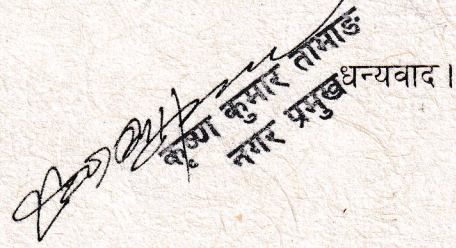 धन्यवाद।
कृष्ण कुमार तामाङ
नगर प्रमुख